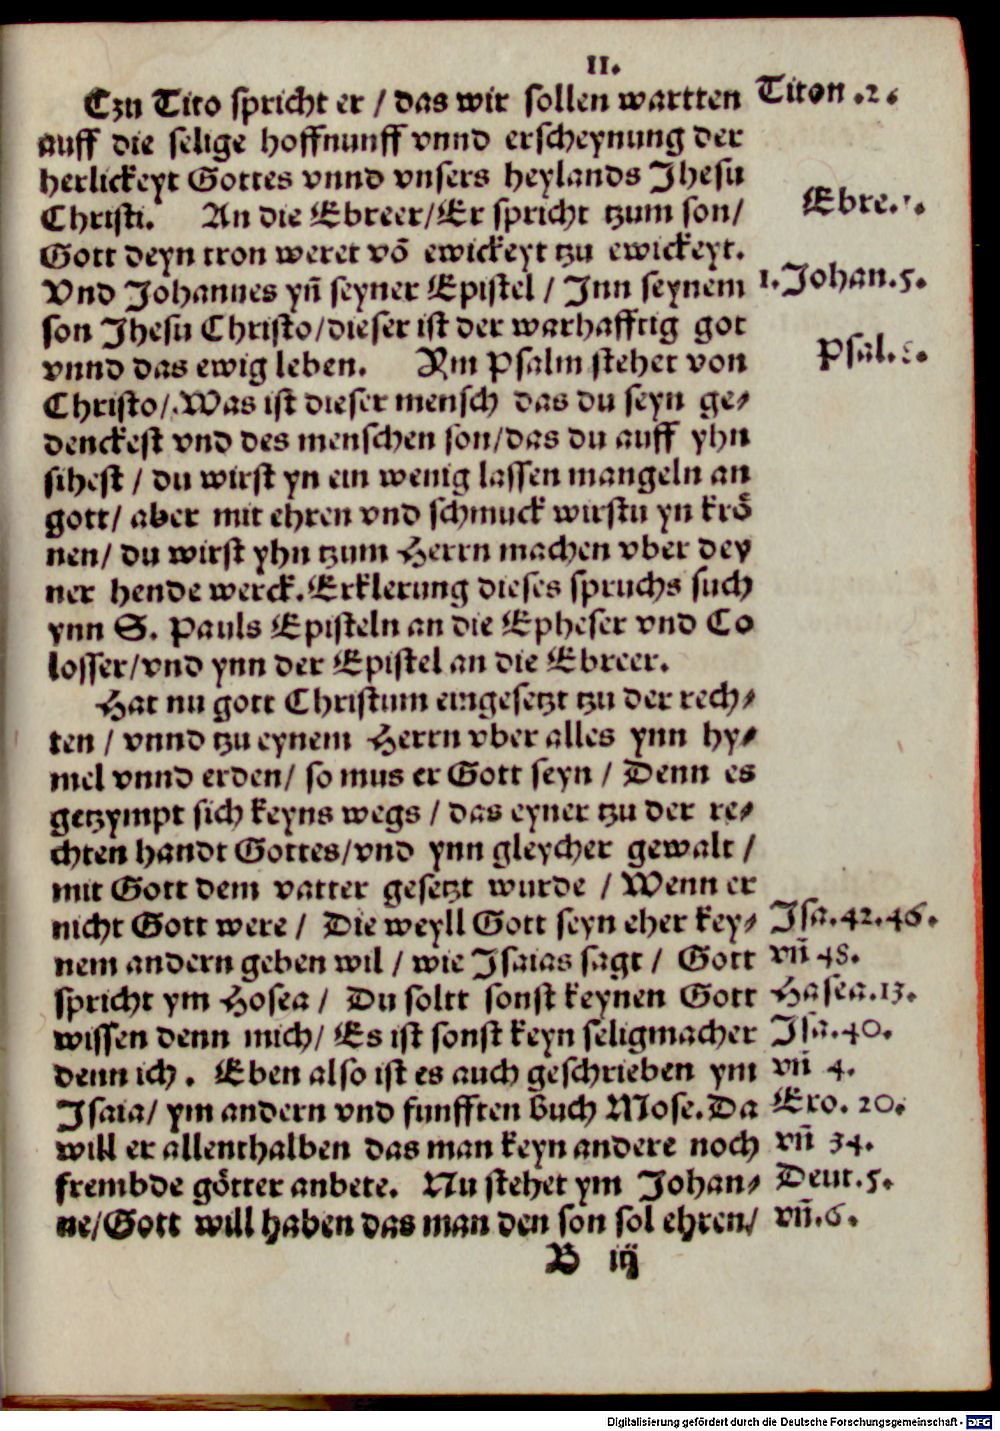 II.
Czu Tito spricht er / das wir sollen wartten
auff die selige hoffnunff vnnd erscheynung der
herlickeyt Gottes vnnd vnsers heylands Jhesu
Christi. An die Ebreer/Er spricht tzum son/
Gott deyn tron weret võ ewickeyt tzu ewickeyt.
Vnd Johannes yñ seyner Epistel / Jnn seynem
son Jhesu Christo/dieser ist der warhafftig got
vnnd das ewig leben. Am Psalm stehet von
Christo/.Was ist dieser mensch das du seyn ge⸗
denckest vnd des menschen son/das du auff yhn
sihest / du wirst yn ein wenig lassen mangeln an
gott/ aber mit ehren vnd schmuck wirstu yn krö
nen/ du wirst yhn tzum Herrn machen vber dey
ner hende werck. Erklerung dieses spruchs such
ynn S. Pauls Episteln an die Epheser vnd Co
losser/vnd ynn der Epistel an die Ebreer.
Hat nu gott Christum eingesetzt tzu der rech⸗
ten / vnnd tzu eynem Herrn vber alles ynn hy⸗
mel vnnd erden/ so mus er Gott seyn / Denn es
getzympt sich keyns wegs / das eyner tzu der re⸗
chten handt Gottes/vnd ynn gleycher gewalt /
mit Gott dem vatter gesetzt wurde / Wenn er
nicht Gott were / Die weyll Gott seyn eher key⸗
nem andern geben wil / wie Jsaias sagt / Gott
spricht ym Hosea / Du soltt sonst keynen Gott
wissen denn mich/ Es ist sonst keyn seligmacher
denn ich . Eben also ist es auch geschrieben ym
Jsaia/ ym andern vnd funfften buch Mose. Da
will er allenthalben das man keyn andere noch
frembde götter anbete. Nu stehet ym Johan⸗
ne/Gott will haben das man den son sol ehren/
B iij
Titon .2.
Ebre.
1. Johan. 5.
Psal.
Jsa. 42. 46.
vñ 48.
Hasea. 13.
Jsa. 40.
vñ 4.
Exo. 20.
vñ 34.
Deut. 5.
vñ. 6.
Digitalisierung gefördert durch die Deutsche Forschungsgemeinschaft - DFG